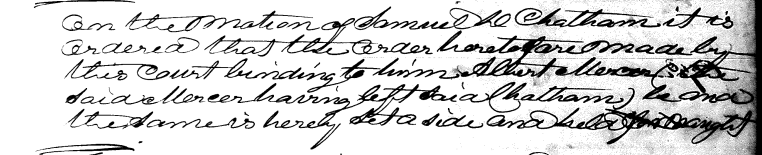 On the motion of Samuel D Chatham it is
ordered that the order heretofore made by
this Court binding to him Albert Mercer (the
said Mercer having left said Chatham) be and
the same is hereby set a side and held for naught